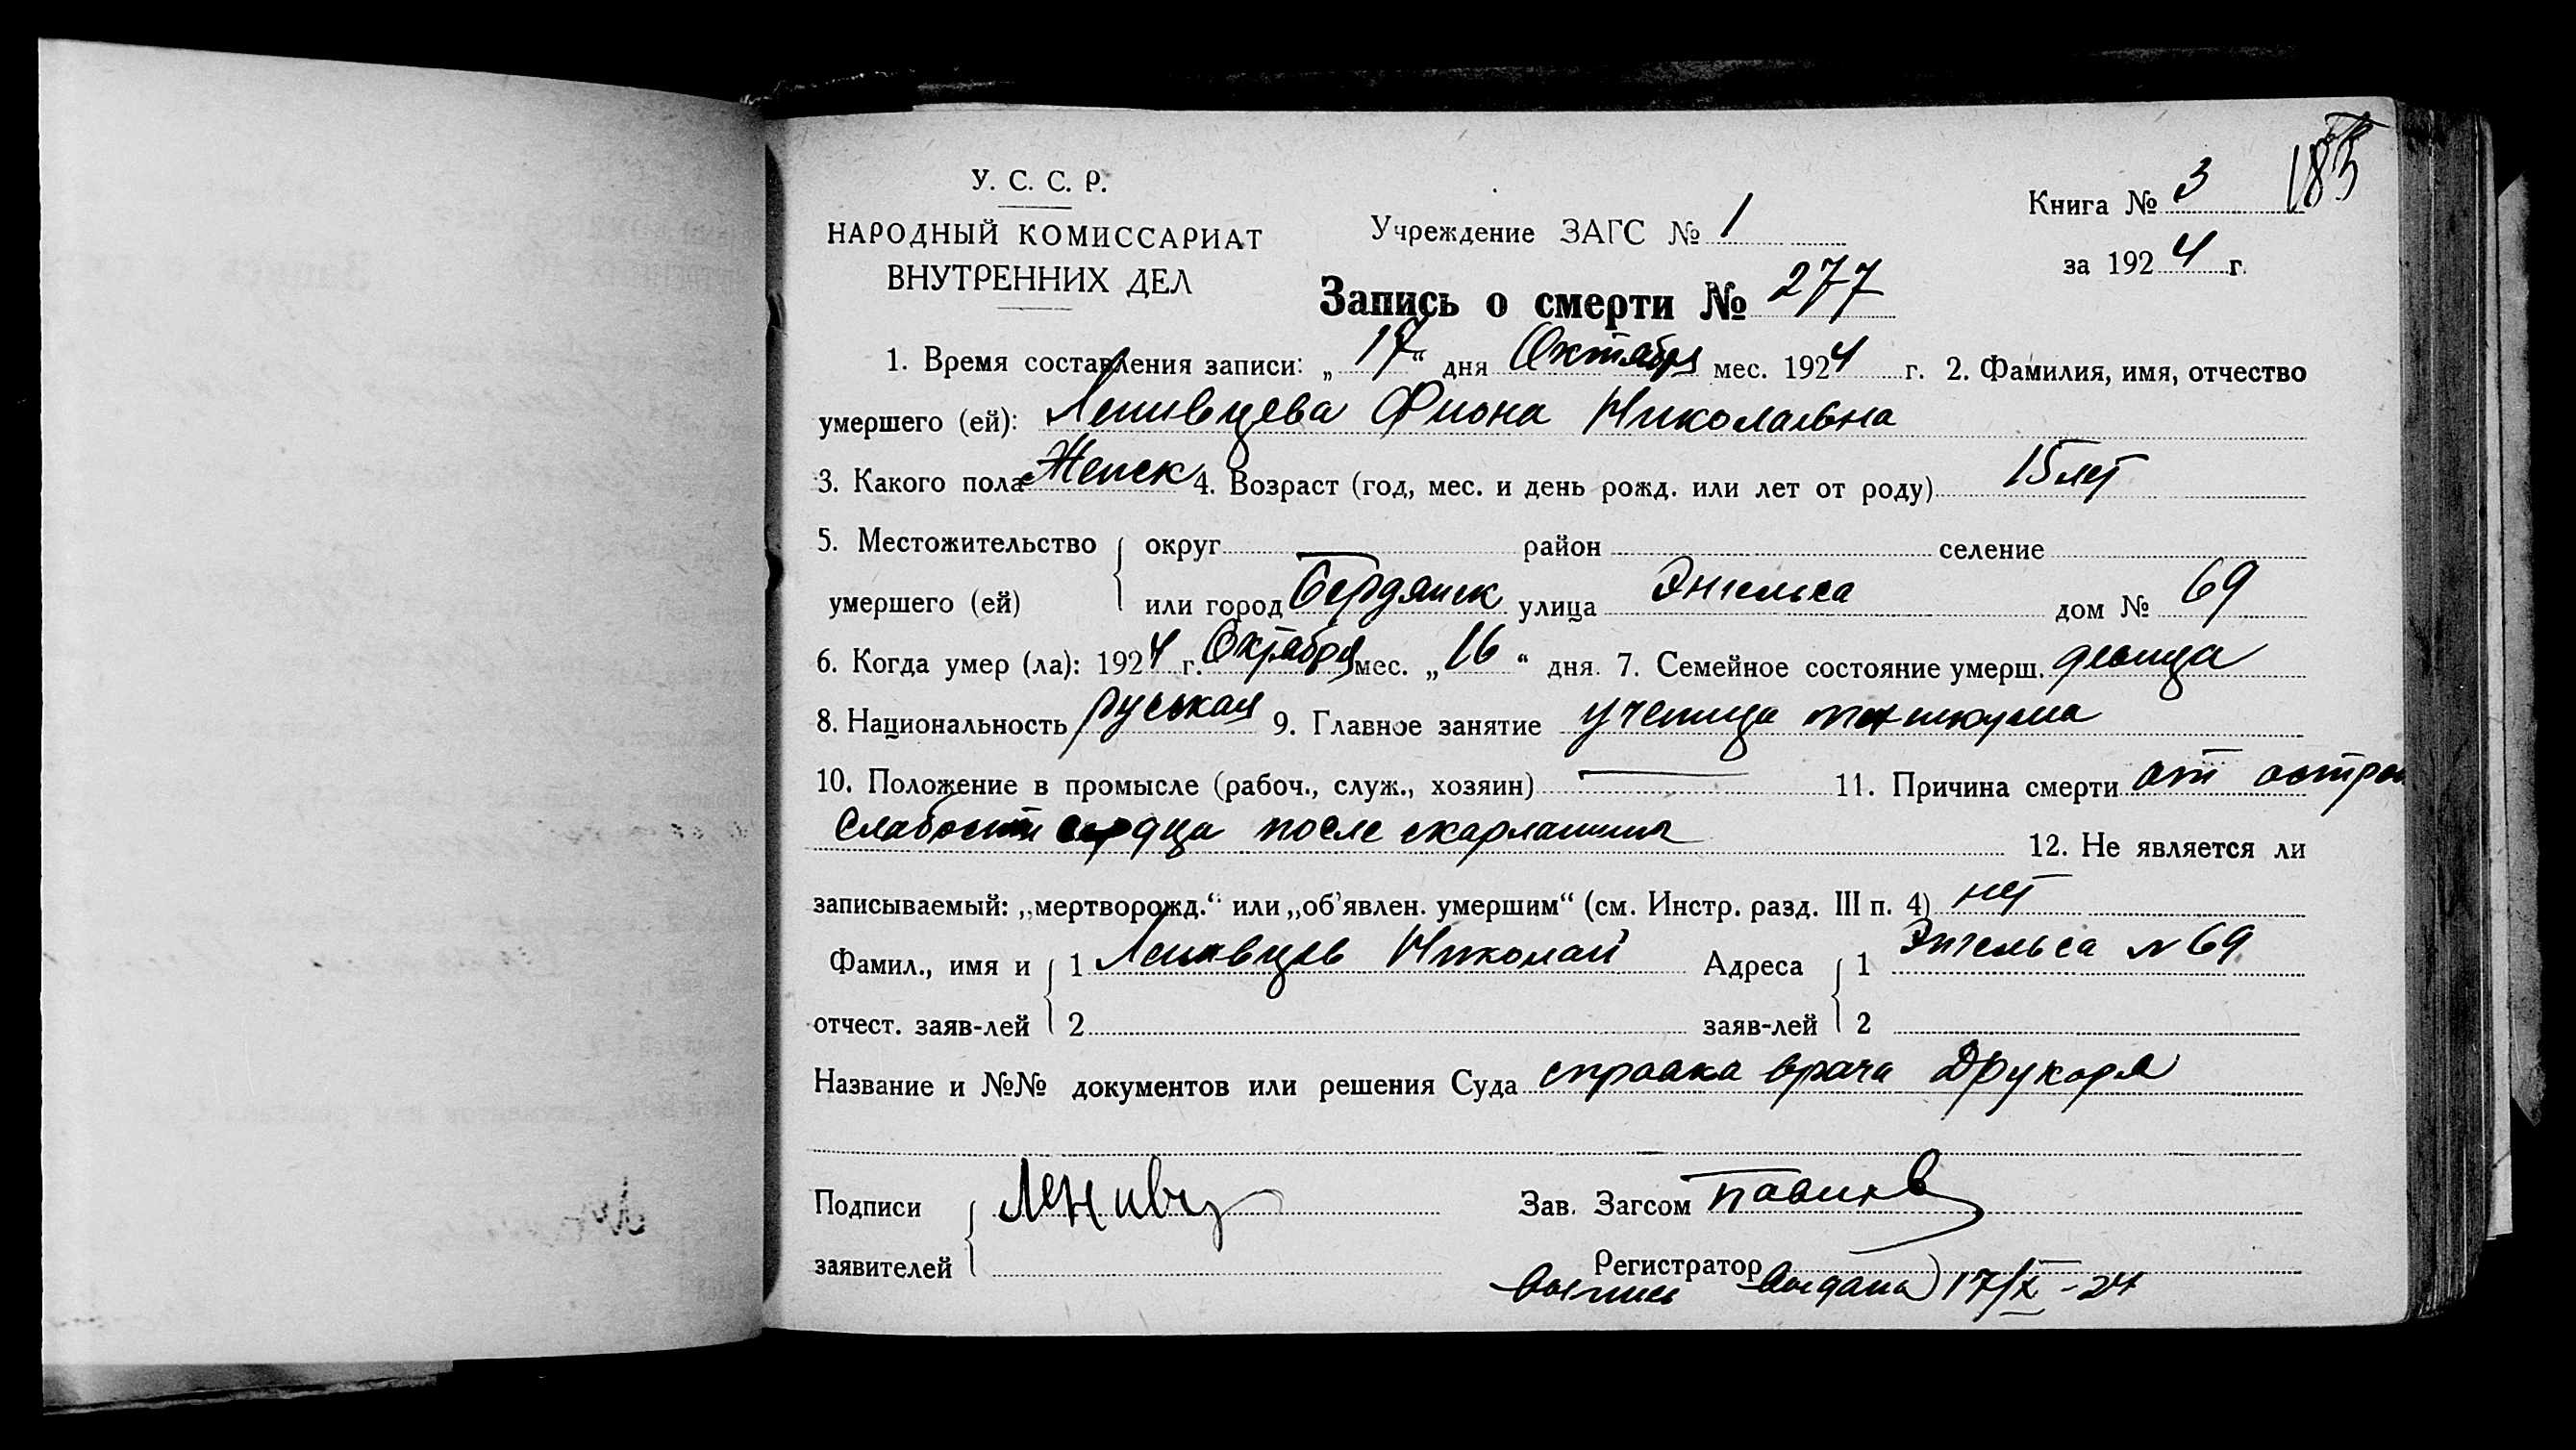 У. С. С. Р.
НАРОДНЫЙ КОМИССАРИАТ
ВНУТРЕННИХ ДЕЛ
Учреждение ЗАГС № 1
Книга № 3 185
за 1924 г.
Запись о смерти № 277
1. Время составления записи: „17“ дня Октября мес. 1924 г. 2. Фамилия, имя, отчество
умершего (ей): Ленивцева Фиона Николаевна
3. Какого пола Женск 4. Возраст (год, мес. и день рожд. или лет от роду) 15 лет
5. Местожительство округ район селение
умершего (ей) или город Бердянск улица Энгельса дом № 69
6. Когда умер (ла): 1924 г. Октября мес. „16“ дня. 7. Семейное состояние умерш. девица
8. Национальность руськая 9. Главное занятие ученица техникума
10. Положение в промысле (рабоч., служ., хозяин) — 11. Причина смерти от острой
слабости сердца после скарлатины
12. Не является ли
записываемый: „мертворожд.“ или „об'явлен. умершим“ (см. Инстр. разд. III п. 4) нет
Фамил., имя и 1 Ленивцев Николай Адреса 1 Энгельса № 69
отчест. заяв-лей 2 заяв-лей 2
Название и №№ документов или решения Суда справка врача Друкаря
Подписи Ленивц Зав. Загсом
заявителей Регистратор
выпись выдана 17/X - 24